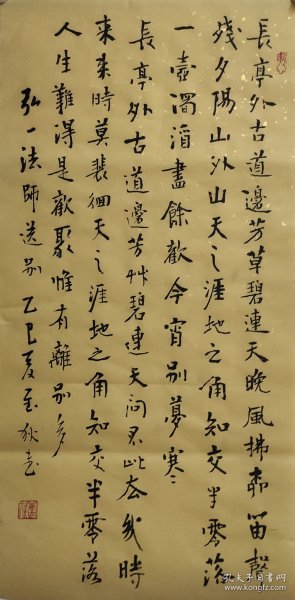 長亭外古道邊芳草碧連天晚風拂柳笛聲
殘夕陽山外山天之涯地之角知交半零落
一壺濁酒盡餘歡今宵別夢寒
長亭外古道邊芳艸碧連天問君此去幾時
來來時莫裴徊天之涯地之角知交半零落
人生難得是歡聚惟有離別多
弘一法師送別 乙巳夏至
孔夫子旧书网